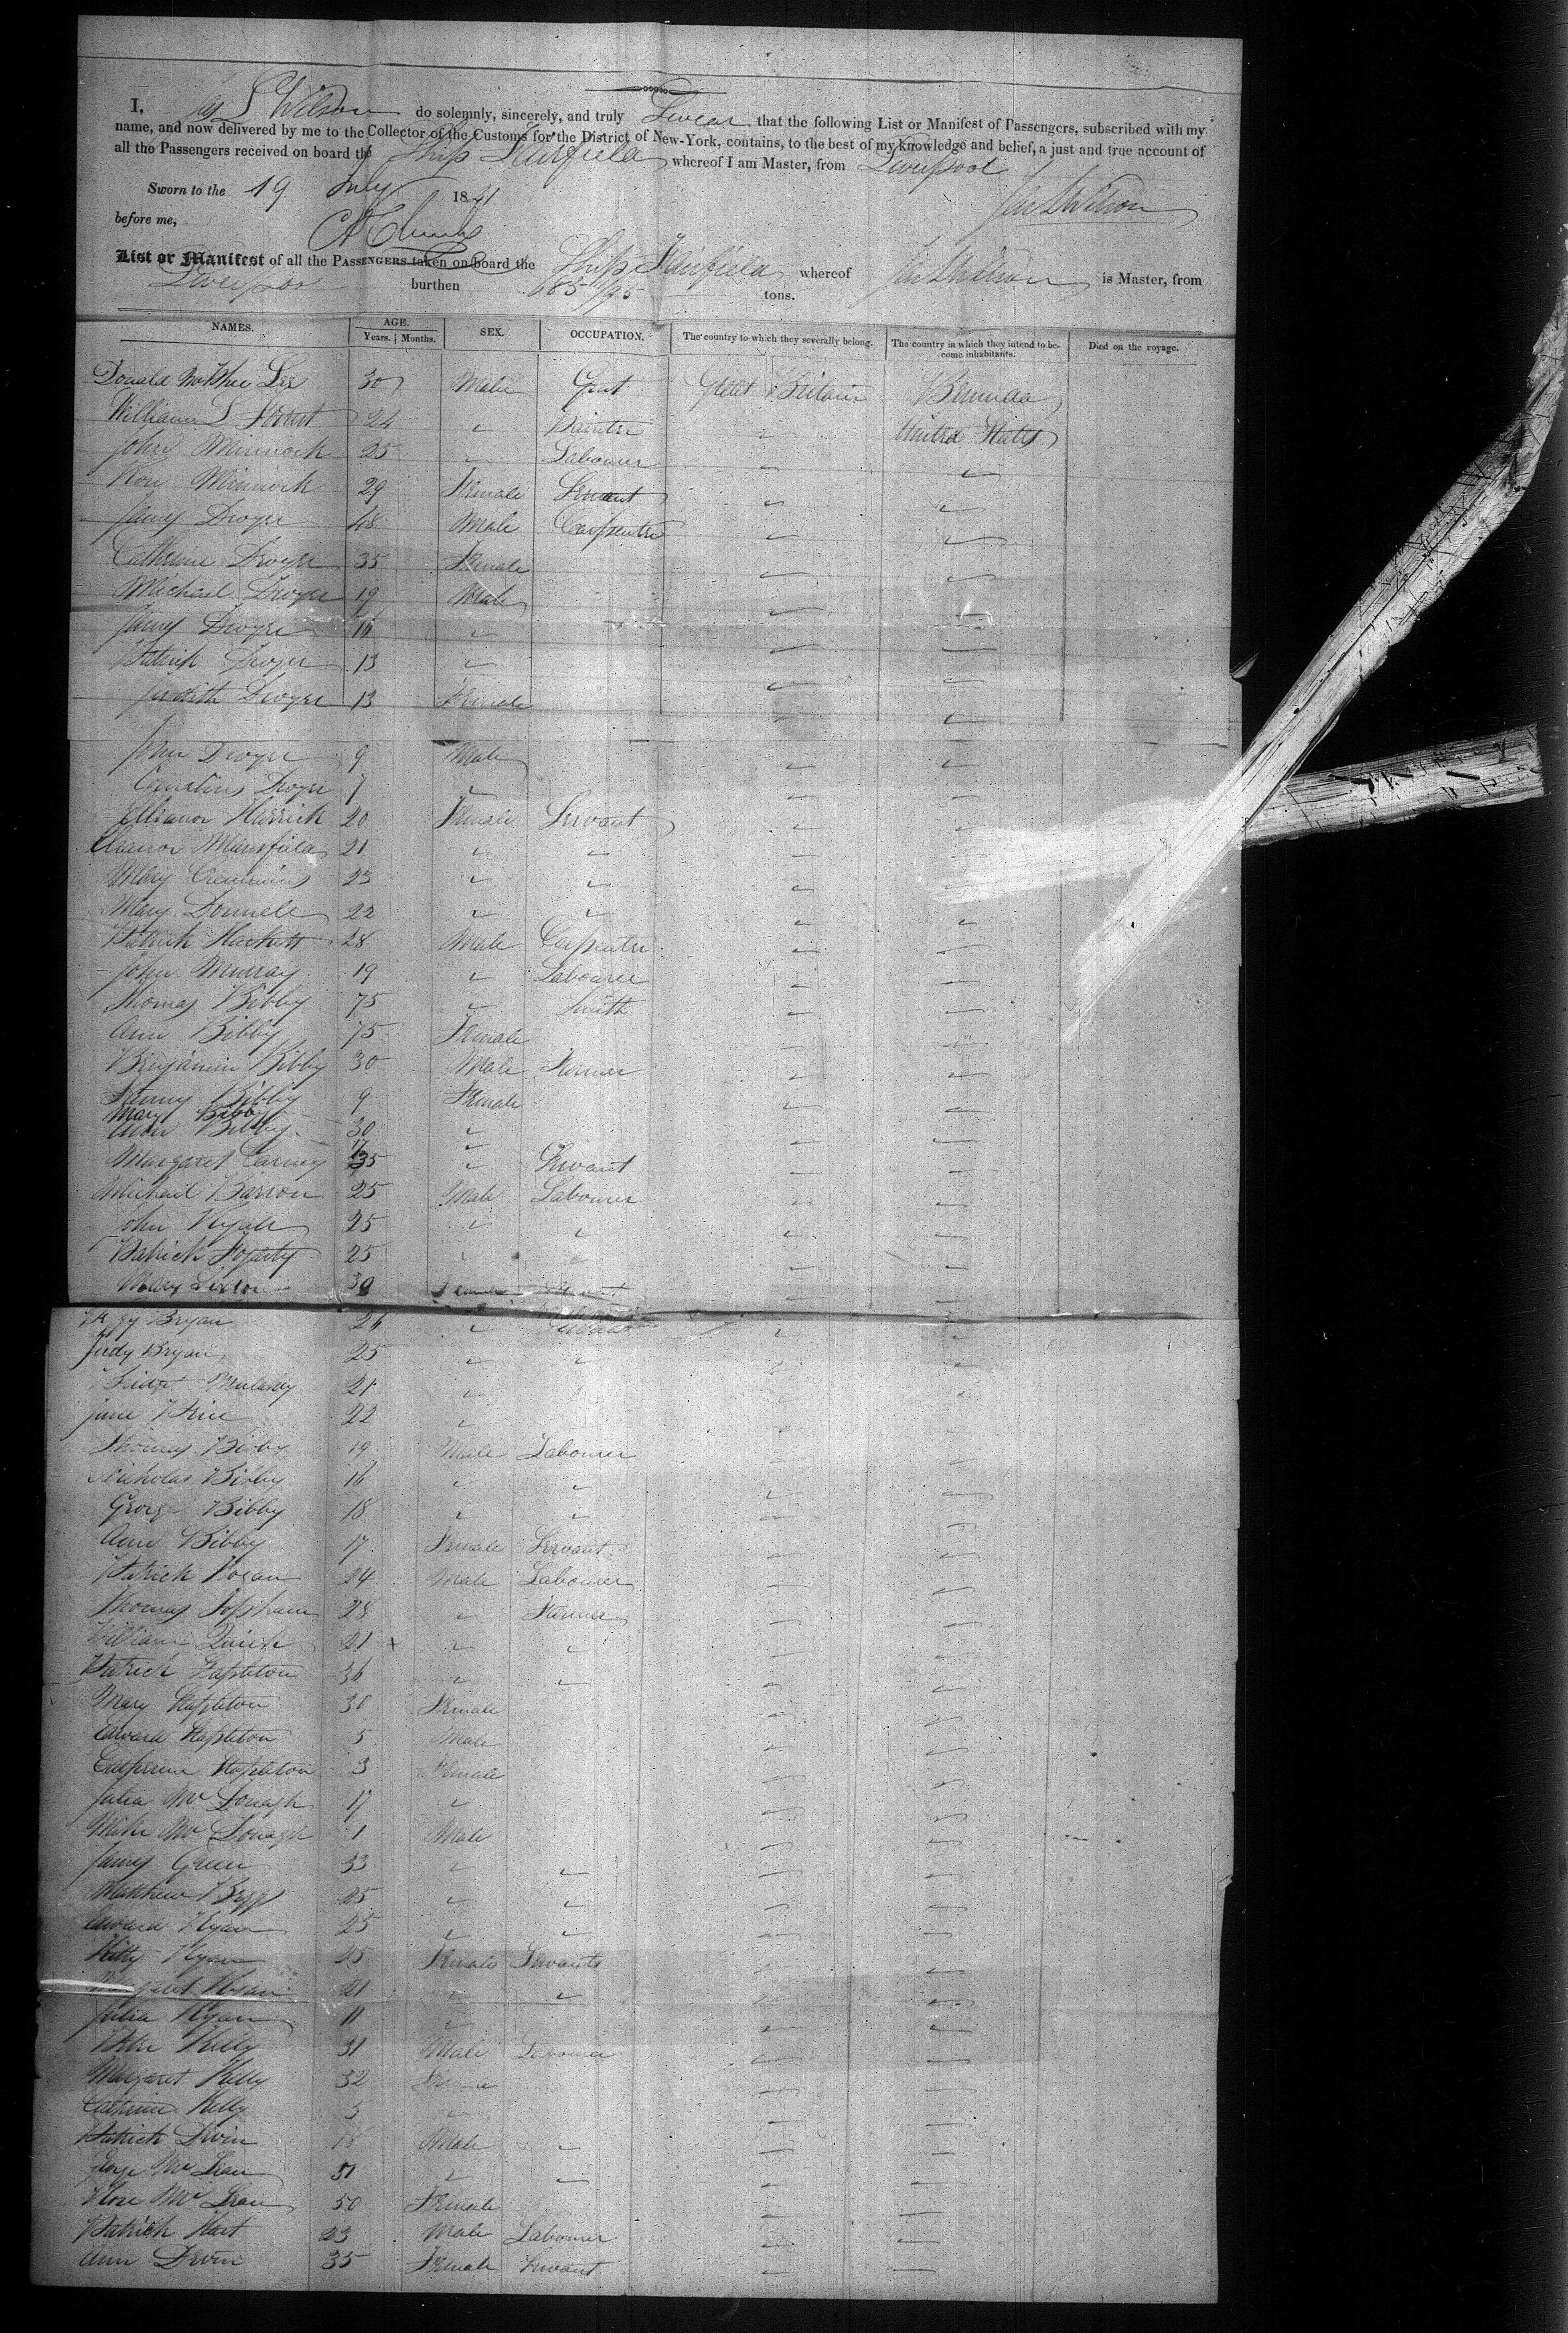 I, Jas L Wilson do solemnly, sincerely, and truly Swear that the following List or Manifest of Passengers, subscribed with my
name, and now delivered by me to the Collector of the Customs for the District of New-York, contains, to the best of my knowledge and belief, a just and true account of
all the Passengers received on board the Ship Fairfield whereof I am Master, from Liverpool
Sworn to the 19 July 1841 Jas L Wilson
before me,
List or Manifest of all the PASSENGERS taken on board the Ship Fairfield whereof Jas L Wilson is Master, from
Liverpool burthen 685/95 tons.
NAMES. AGE. SEX. OCCUPATION. The country to which they severally belong. The country in which they intend to become inhabitants. Died on the voyage.
Years. Months.
Donald Lee 30 Male Great Britain Bermuda
William S 24 " Painter " United States
John Minnock 25 " Labourer " "
Minnock 29 Female Servant " "
James Dwyer 48 Male Carpenter " "
Catherine Dwyer 35 Female " "
Michael Dwyer 19 Male " "
James Dwyer 16 " " "
Patrick Dwyer 13 " " "
Judith Dwyer 13 Female " "
John Dwyer 9 Male " "
Cornelius Dwyer 7 " " "
Ellianor Herrick 20 Female Servant " "
Eleanor Mansfield 21 " " " "
Mary Cummins 23 " " " "
Mary Donnell 22 " " " "
Patrick Hackett 28 Male Carpenter " "
John Murray 19 " Labourer " "
Thomas Bibby 75 " Smith " "
Ann Bibby 75 Female " "
Benjamin Bibby 30 Male Farmer " "
Fanny Bibby 9 Female " "
Mary Bibby
Ann Bibby 30 " " "
Margaret Carney 35 " Servant " "
Michael Barron 25 Male Labourer " "
John Ryan 25 " " " "
Patrick Fogarty 25 " " " "
Mary 30 Female Servant " "
Bryan 26 " " "
Judy Bryan 25 " " " "
Bridget Mulassy 21 " "
Jane Price 22 "
Thomas Bibby 19 Male Labourer " "
Nicholas Bibby 16 " " " "
George Bibby 18 " " " "
Ann Bibby 17 Female Servant " "
Patrick Hogan 24 Male Labourer " "
Thomas Topsham 28 " Farmer " "
William Quirk 21 + " " " "
Patrick Stapleton 36 " " " "
Mary Stapleton 30 Female " "
Edward Stapleton 5 Male " "
Catherine Stapleton 3 Female " "
Julia Mc Donagh 17 " " "
Mike Mc Donagh 1 Male " "
James Green 33 " " " "
Matthew Begg 25 " " " "
Edward Ryan 25 " " " "
Kitty Ryan 25 Female Servants " "
Margaret Hogan 21 " " " "
Julia Ryan 11 " " "
Peter Kelly 31 Male Labourer " "
Margaret Kelly 32 Female " "
Catherine Kelly 5 " " "
Patrick Devin 18 Male " " "
George Mc Lean 51 " " " "
Rose Mc Lean 50 Female " "
Patrick Hart 23 Male Labourer " "
Ann Devin 35 Female Servant " "